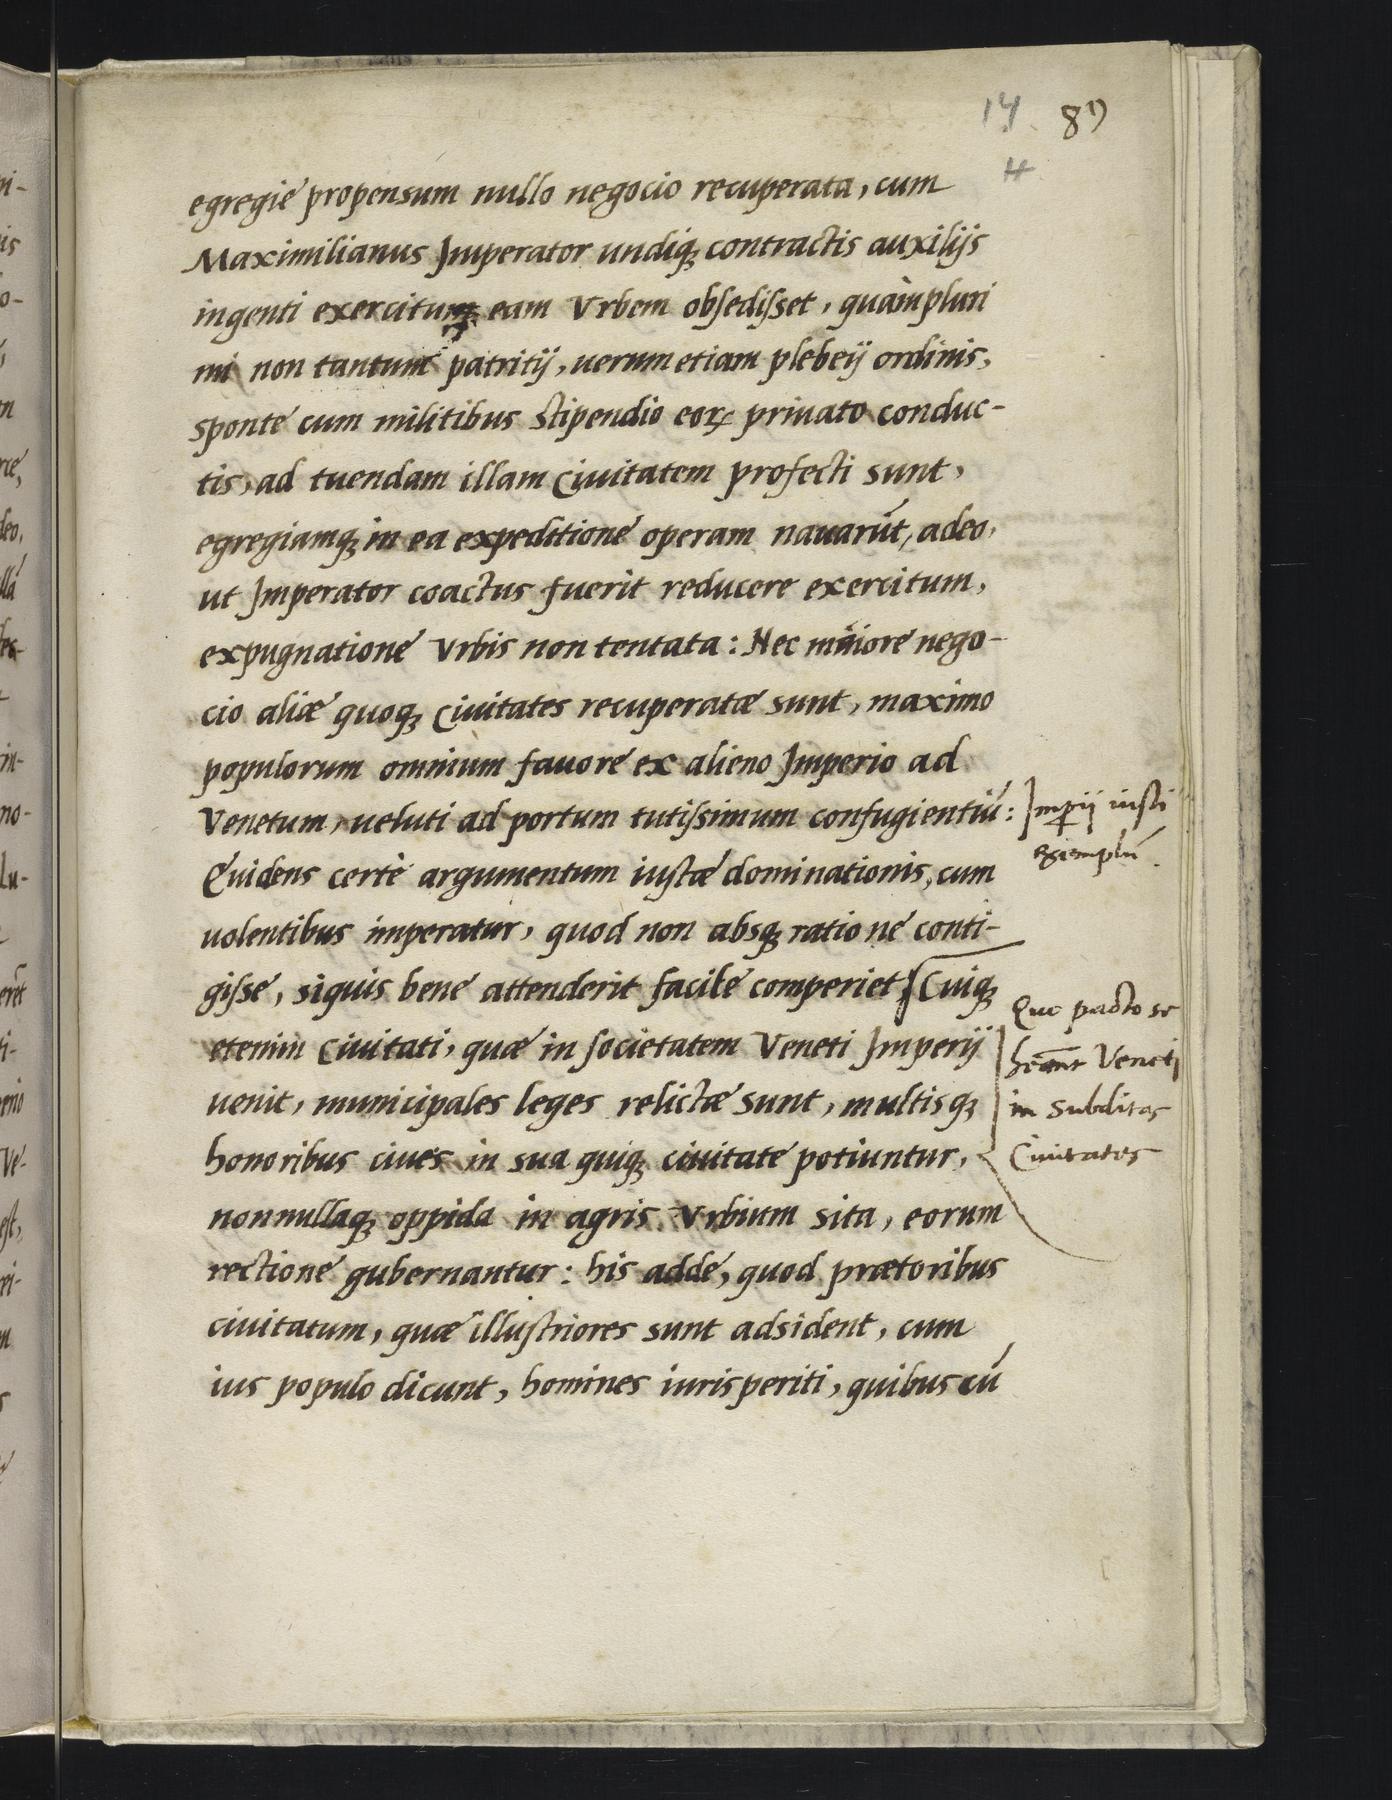 14 89
H
egregie propensum nullo negocio recuperata, cum
Maximilianus Imperator undiq; contractis auxilijs
ingenti exercituq; eam Vrbem obsedisset, quàmpluri
mi non tantum patritij, uerumetiam plebeij ordinis,
sponte cum militibus stipendio eorꝝ priuato conduc-
tis, ad tuendam illam Ciuitatem profecti sunt,
egregiamq; in ea expeditione operam nauarūt, adeo,
ut Imperator coactus fuerit reducere exercitum,
expugnatione Vrbis non tentata: Nec maiore nego-
cio aliæ quoq; Ciuitates recuperatæ sunt, maximo
populorum omnium fauore ex alieno Imperio ad
Venetum, ueluti ad portum tutissimum confugientiū:
Imꝑii iusti
exemplū.
Euidens certè argumentum iustæ dominationis, cum
uolentibus imperatur, quod non absq; ratione conti-
gisse, siquis bene attenderit facile comperiet Cuiq;
etenim Ciuitati, quæ in societatem Veneti Imperij
uenit, municipales leges relictæ sunt, multisq;
honoribus ciues in sua quiq; ciuitate potiuntur,
Quo pacto se
heānt Veneti
in subditas
Ciuitates
nonnullaq; oppida in agris Vrbium sita, eorum
rectione gubernantur: his adde, quod prætoribus
ciuitatum, quæ illustriores sunt adsident, cum
ius populo dicunt, homines iurisperiti, quibus cū